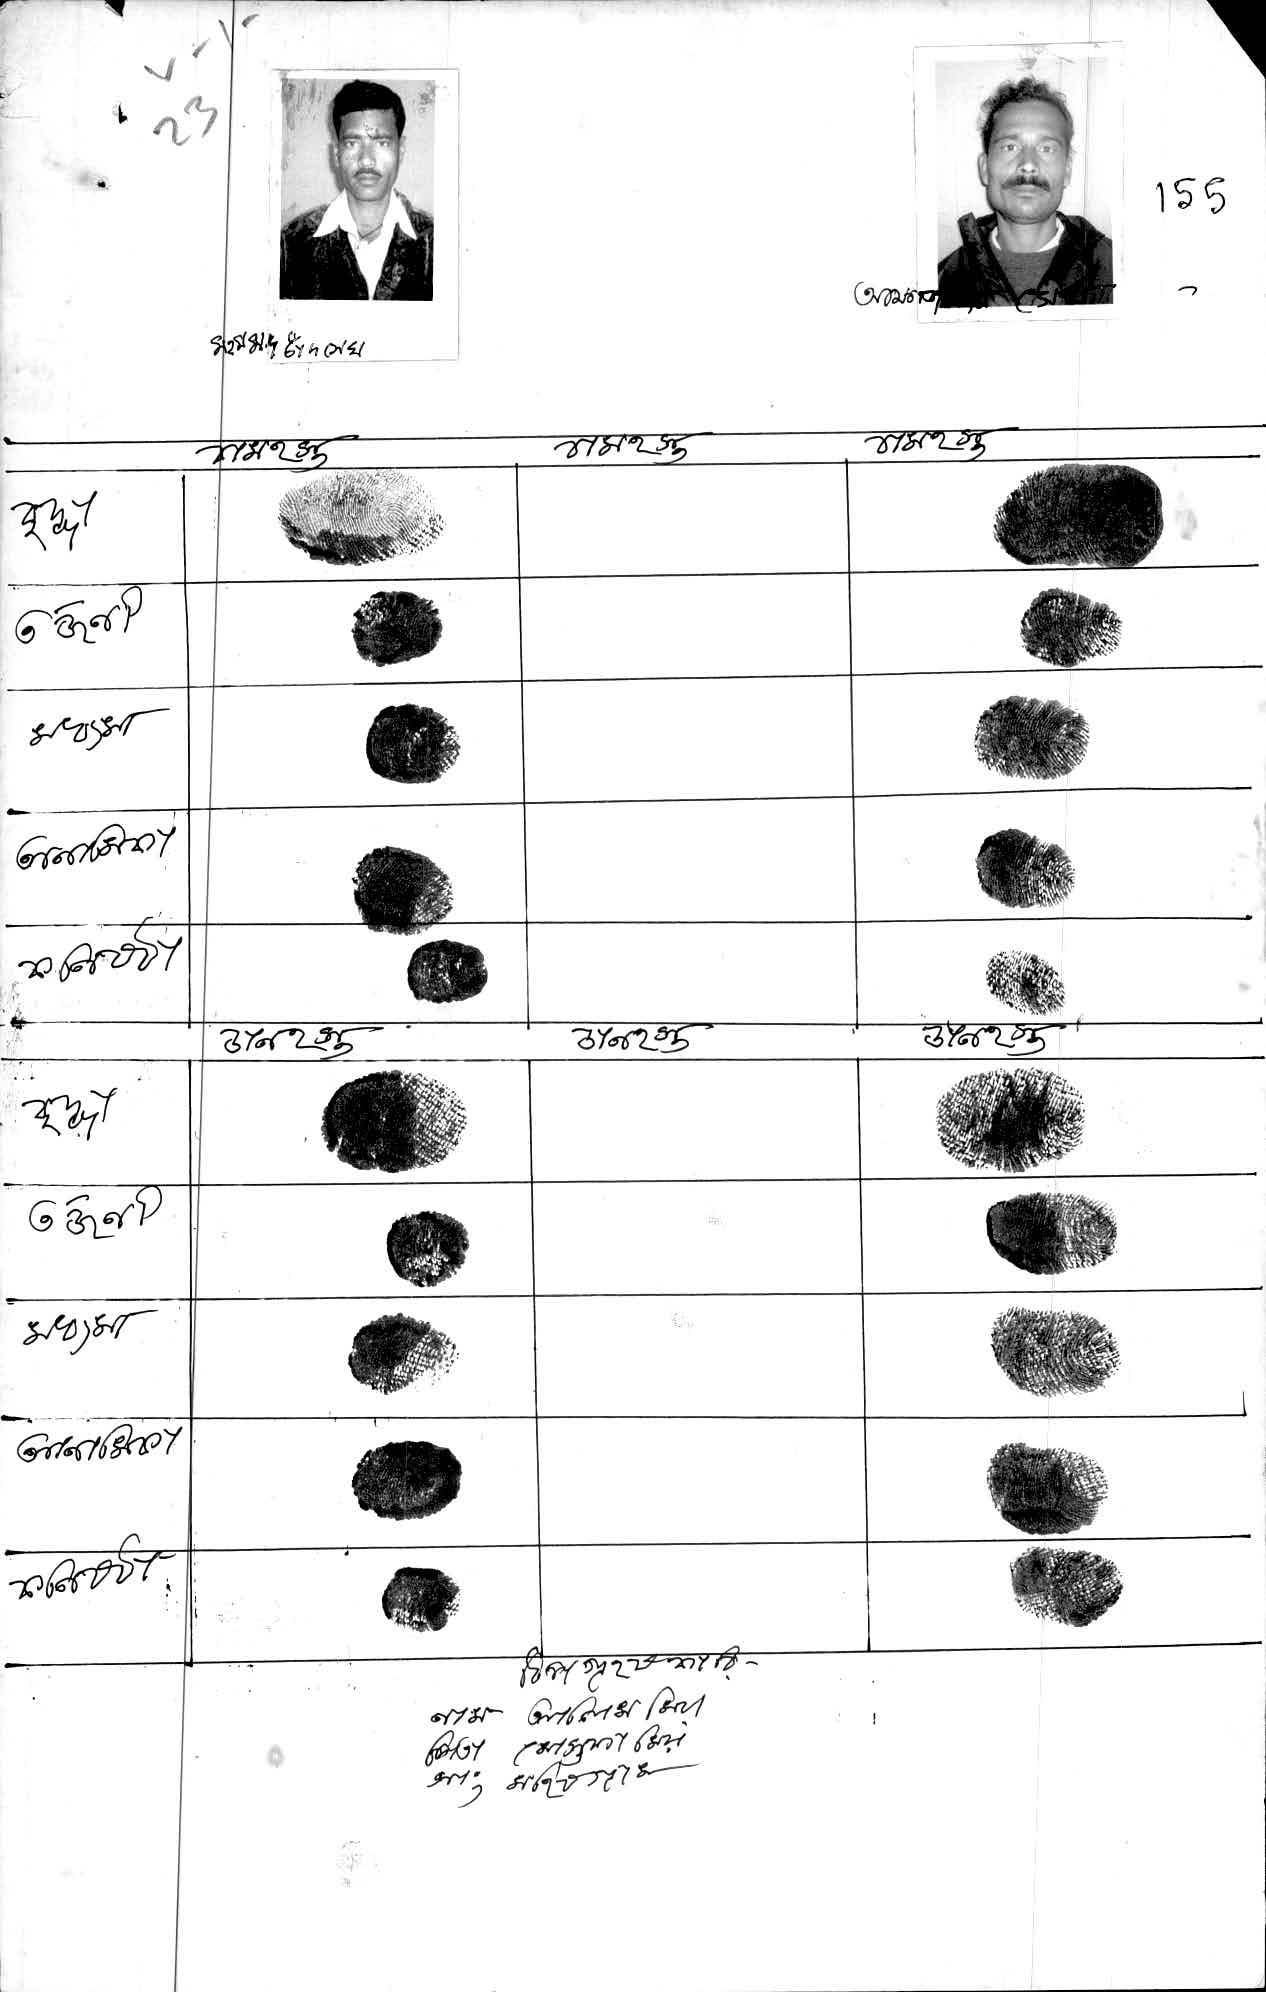 V-1
23
155
মহম্মদ চাঁদ সেখ
বামহস্ত বামহস্ত বামহস্ত
বৃদ্ধা
তর্জনী
মধ্যমা
অনামিকা
কনিষ্ঠা
ডানহস্ত ডানহস্ত ডানহস্ত
বৃদ্ধা
তর্জনী
মধ্যমা
অনামিকা
কনিষ্ঠা
টিপ গৃহতকারি-
নাম আলোম মিঞা
পিতা মোস্তফা মিঞা
সাং মহিতগ্রাম